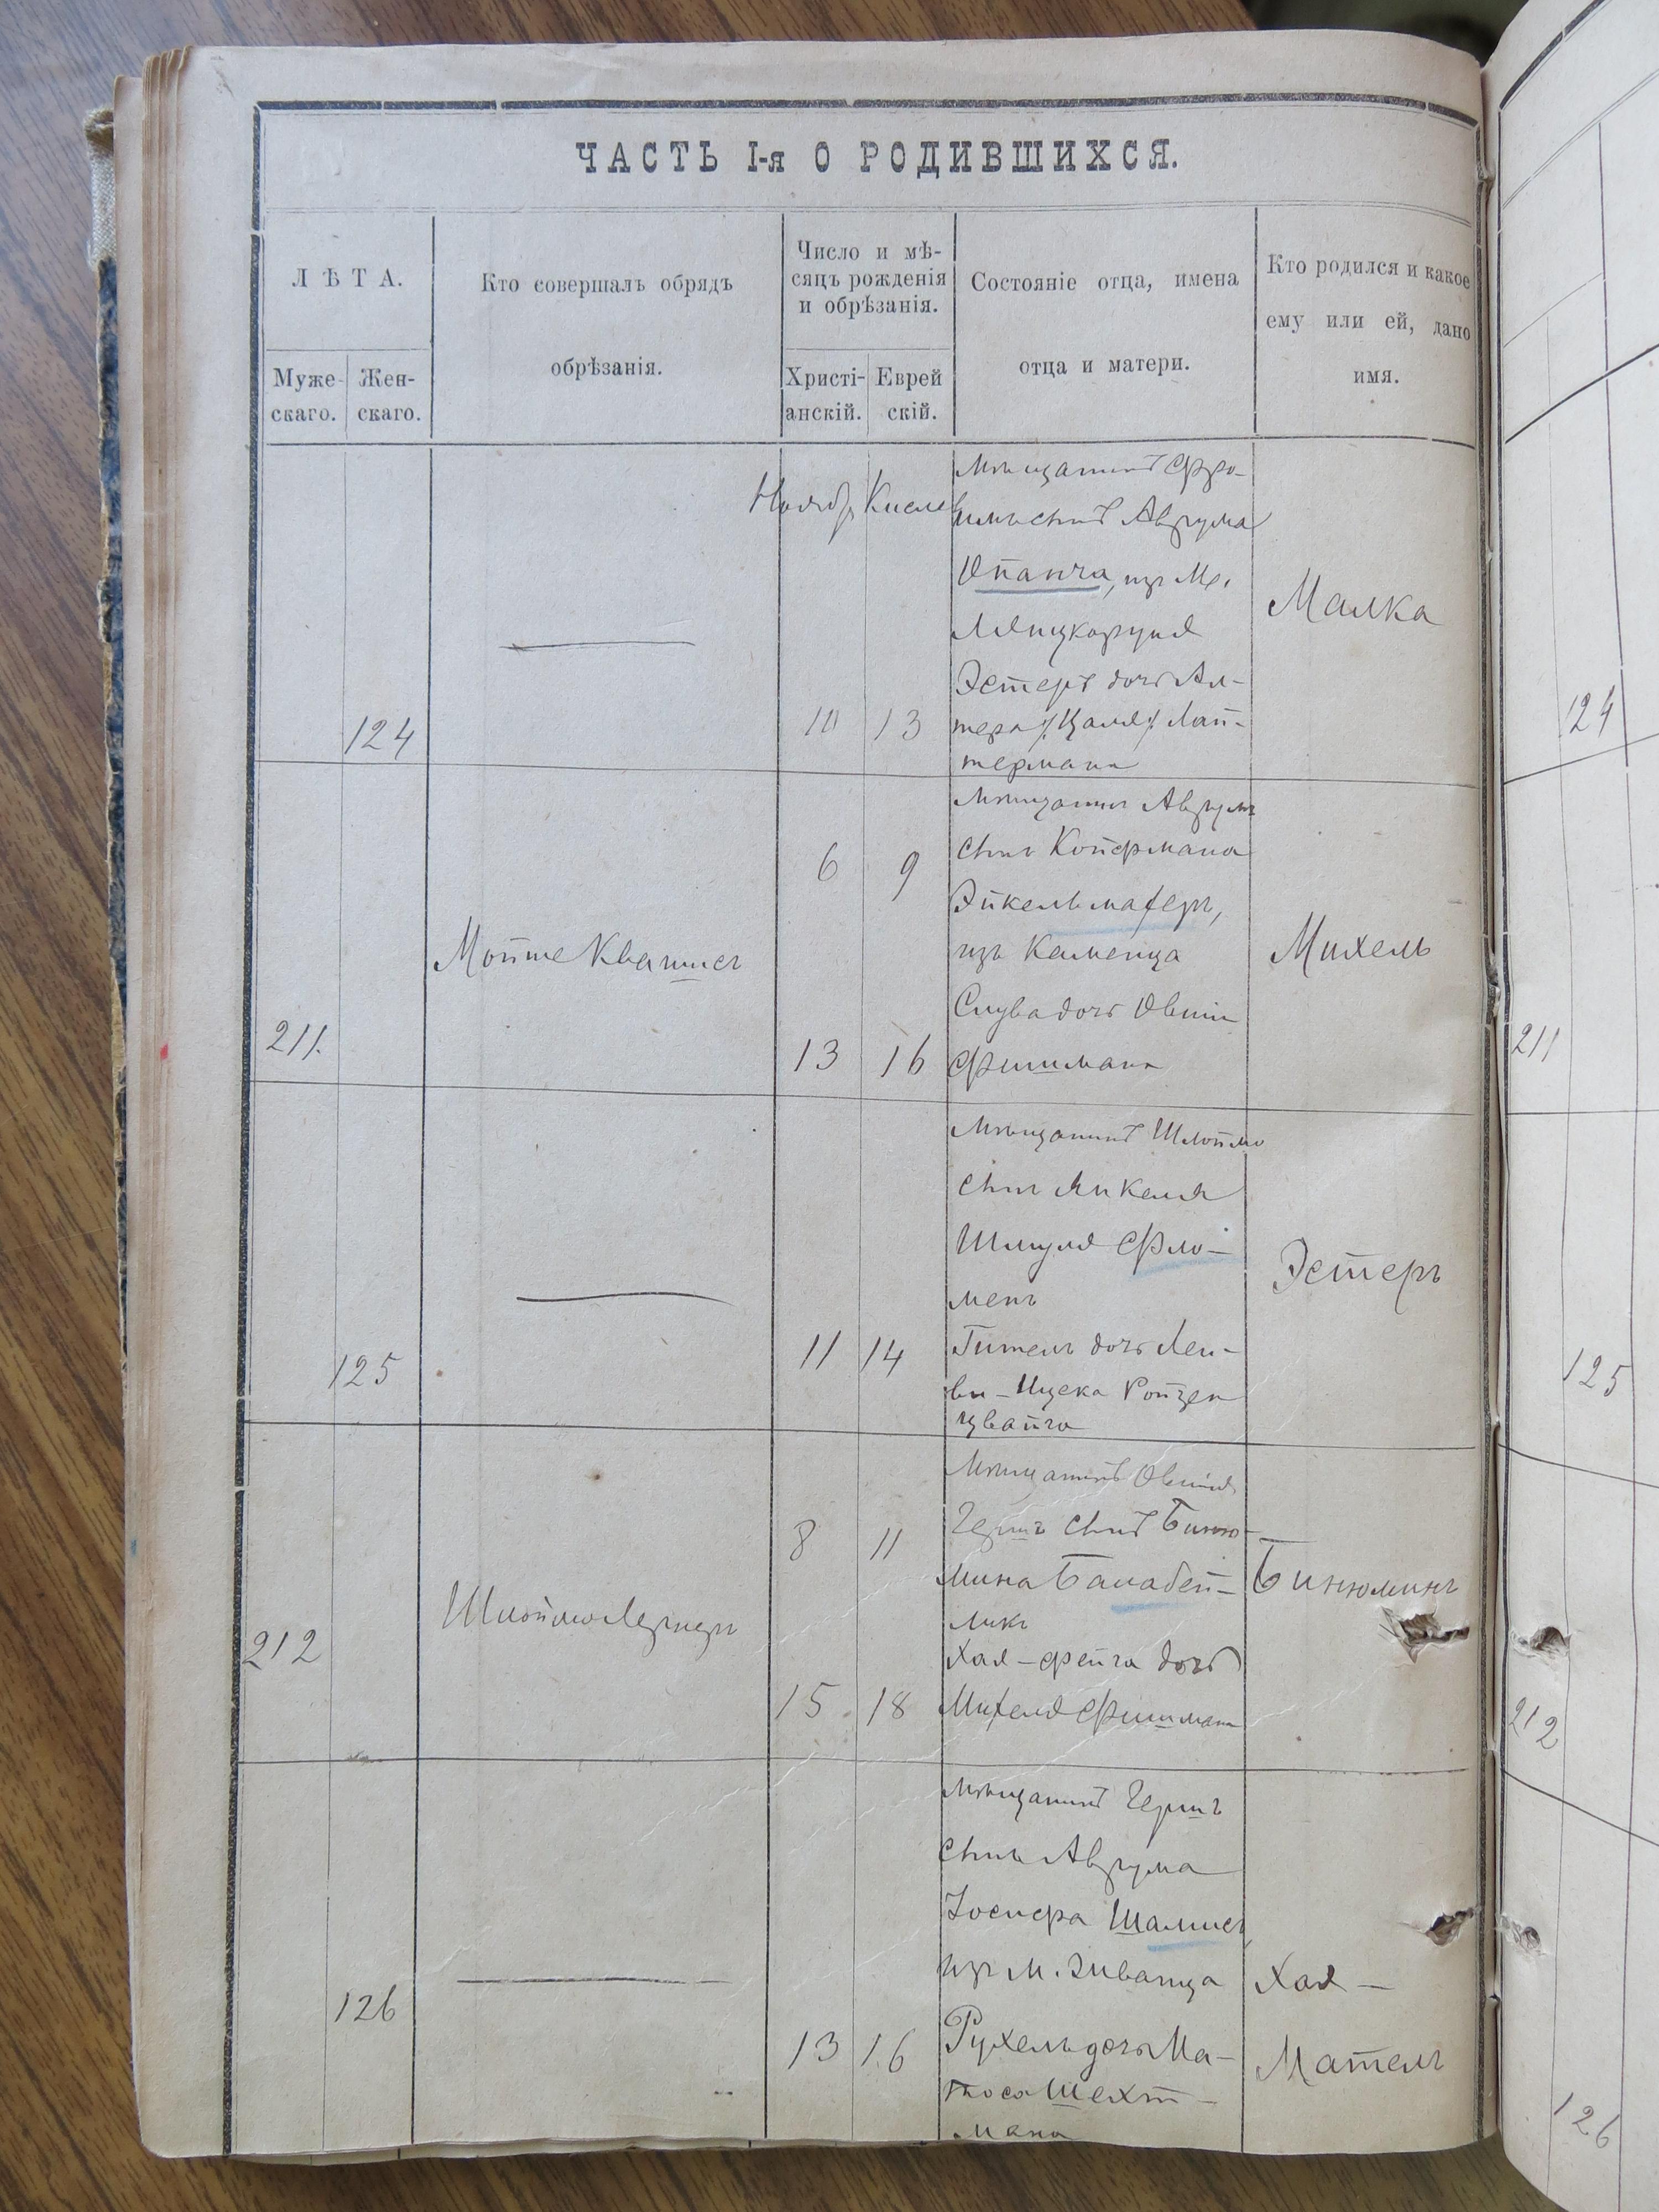 ЧАСТЬ I-я О РОДИВШИХСЯ.
ЛѢТА.
Муже-
скаго.
Жен-
скаго.
Кто совершалъ обрядъ
обрѣзанія.
Число и мѣ-
сяцъ рожденія
и обрѣзанія.
Христі-
анскій.
Еврей
скій.
Состояніе отца, имена
отца и матери.
Кто родился и какое
ему или ей, дано
имя.
124
Ноябр
Кислев
10 13
Мѣщанинъ Фро-
имъ сынъ Аврума
Опанча, изъ М.
Ляцкоруня
Эстеръ дочь Ал-
тера /:Цаля:/ Лай-
термана
Малка
211.
6 9
13 16
Мѣщанинъ Аврумъ
сынъ Койфмана
Эйкельмахеръ,
изъ Каменца
Слува дочь Овшія
Фишмана
Михель
125
11 14
Мѣщанинъ Шлоймо
сынъ Янкеля
Шмуля Фло-
менъ
Гитель дочь Лей-
ви-Ицека Ройзен
цвайга
Эстеръ
212
8 11
15 18
Мѣщанинъ Овшія
Гершъ сынъ Биню-
мина Балабей-
ликъ
Хая-Фейга дочь
Михеля Фишмана
Бинюминъ
126
13 16
Мѣщанинъ Гершъ
сынъ Аврума
Іосифа Шамисъ
изъ м. Жванца
Рухель дочь Ма-
тоса Шехт-
мана
Хая-
Мателъ
124
211
125
212
126